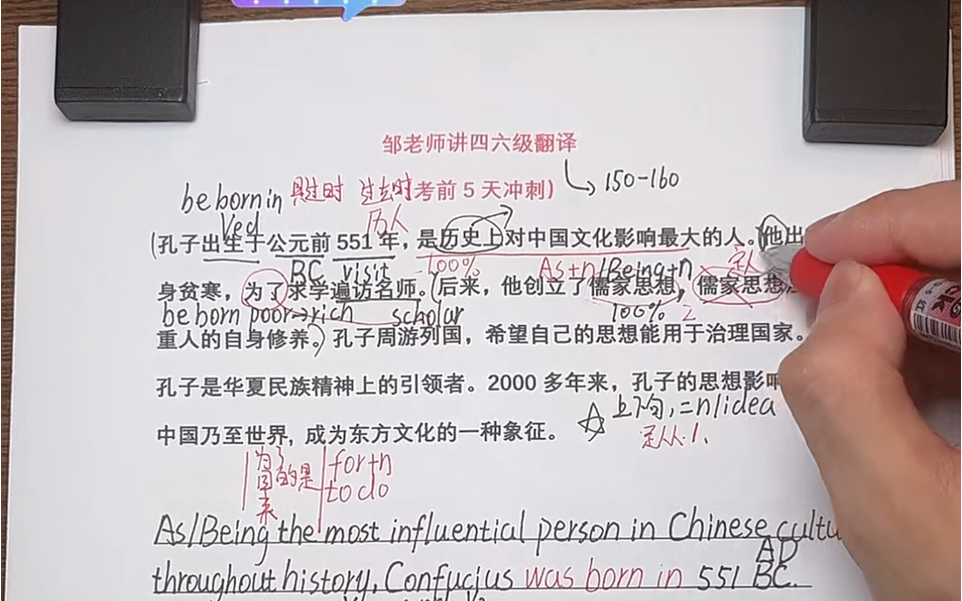 邹老师讲四六级翻译
150-160
be born in 考前5天冲刺)
Ved 历人
(孔子出生于公元前551年,是历史上对中国文化影响最大的人。他出
BC visit 100% As+n/Being+n 定从
身贫寒,为了求学遍访名师。(后来,他创立了儒家思想,儒家思想
be born poor→rich scholar 100% 2
重人的自身修养。)孔子周游列国,希望自己的思想能用于治理国家。
孔子是华夏民族精神上的引领者。2000多年来,孔子的思想影
☆上下句,=n/idea
中国乃至世界,成为东方文化的一种象征。
定从.1.
为了 的是 for+n
to do
As/Being the most influential person in Chinese cultu
AD
throughout history, Confucius was born in 551 BC.